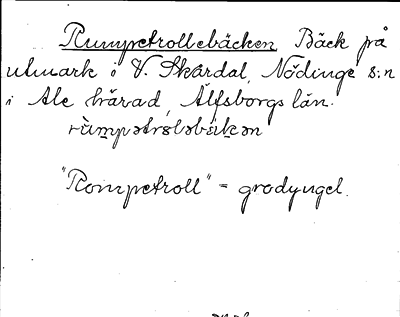 Rumpetrollebäcken Bäck på
utmark i V. Skårdal, Nödinge s:n
i Ale härad, Älfsborgs län.
rùmpətrɷləbäkən
"Rompetroll" = grodyngel.